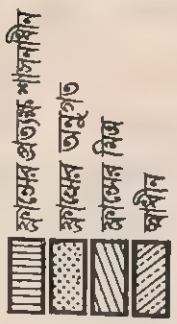 ফ্রান্সের প্রত্যক্ষ শাসনাধীন
ফ্রান্সের অনুগত
ফ্রান্সের মিত্র
স্বাধীন